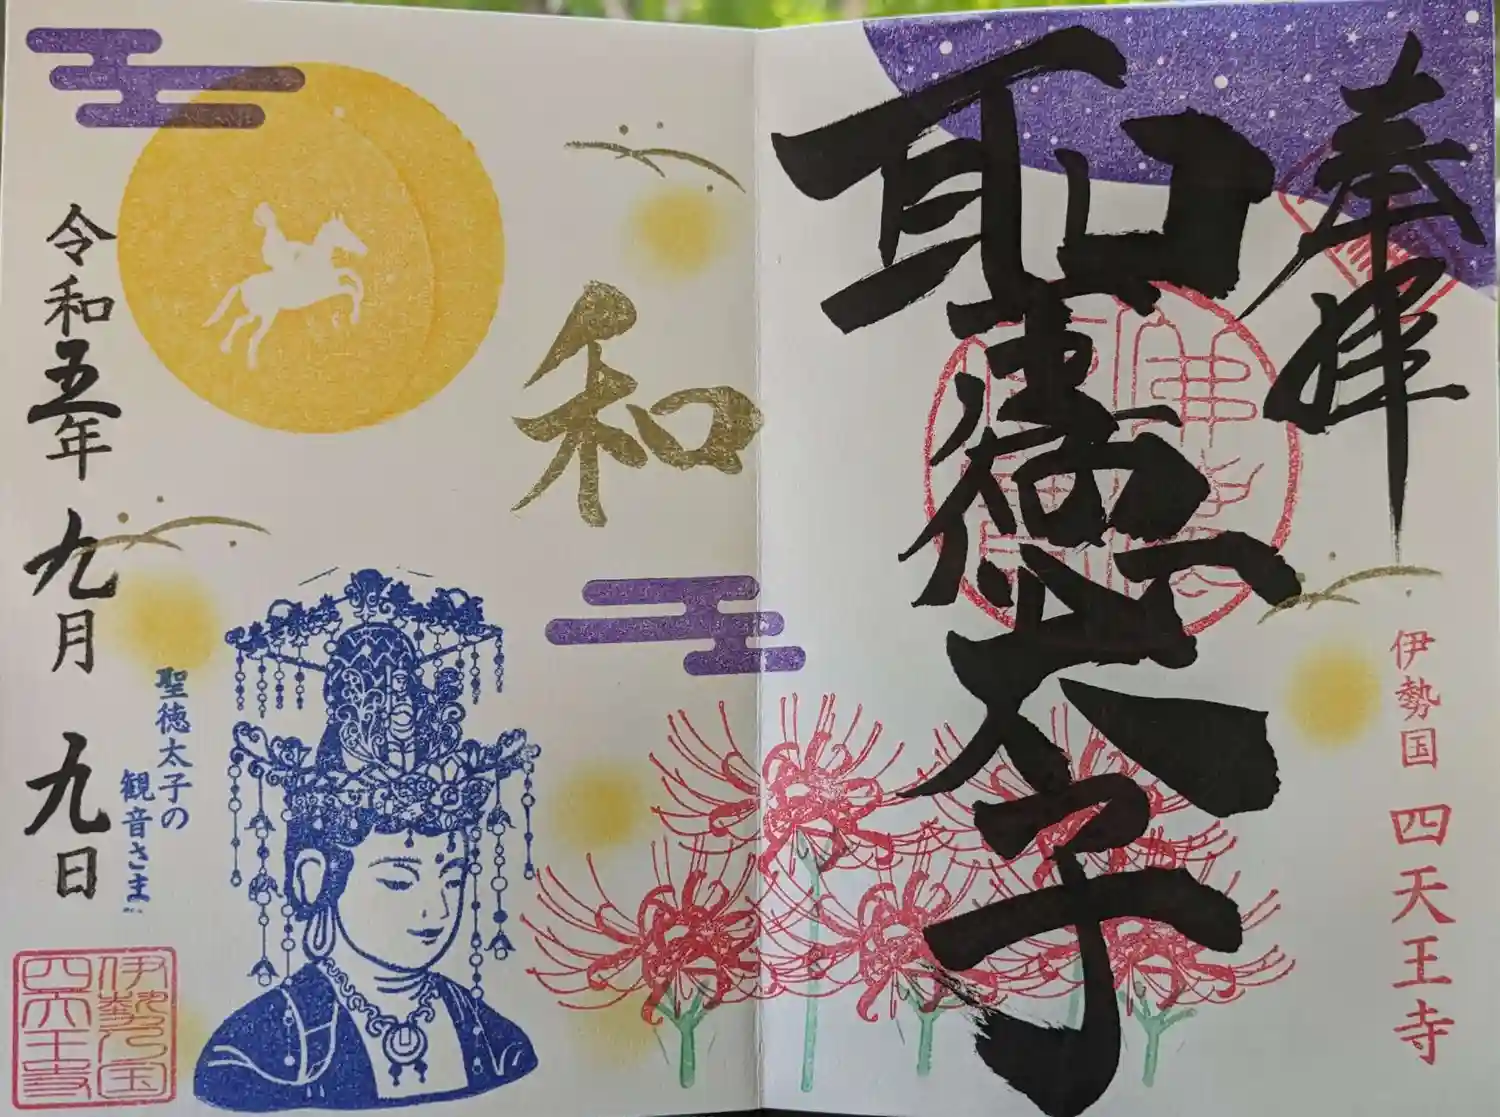 奉拝
聖徳太子
伊勢国 四天王寺
和
聖徳太子の
観音さま
令和五年 九月 九日
伊勢国
四天王寺